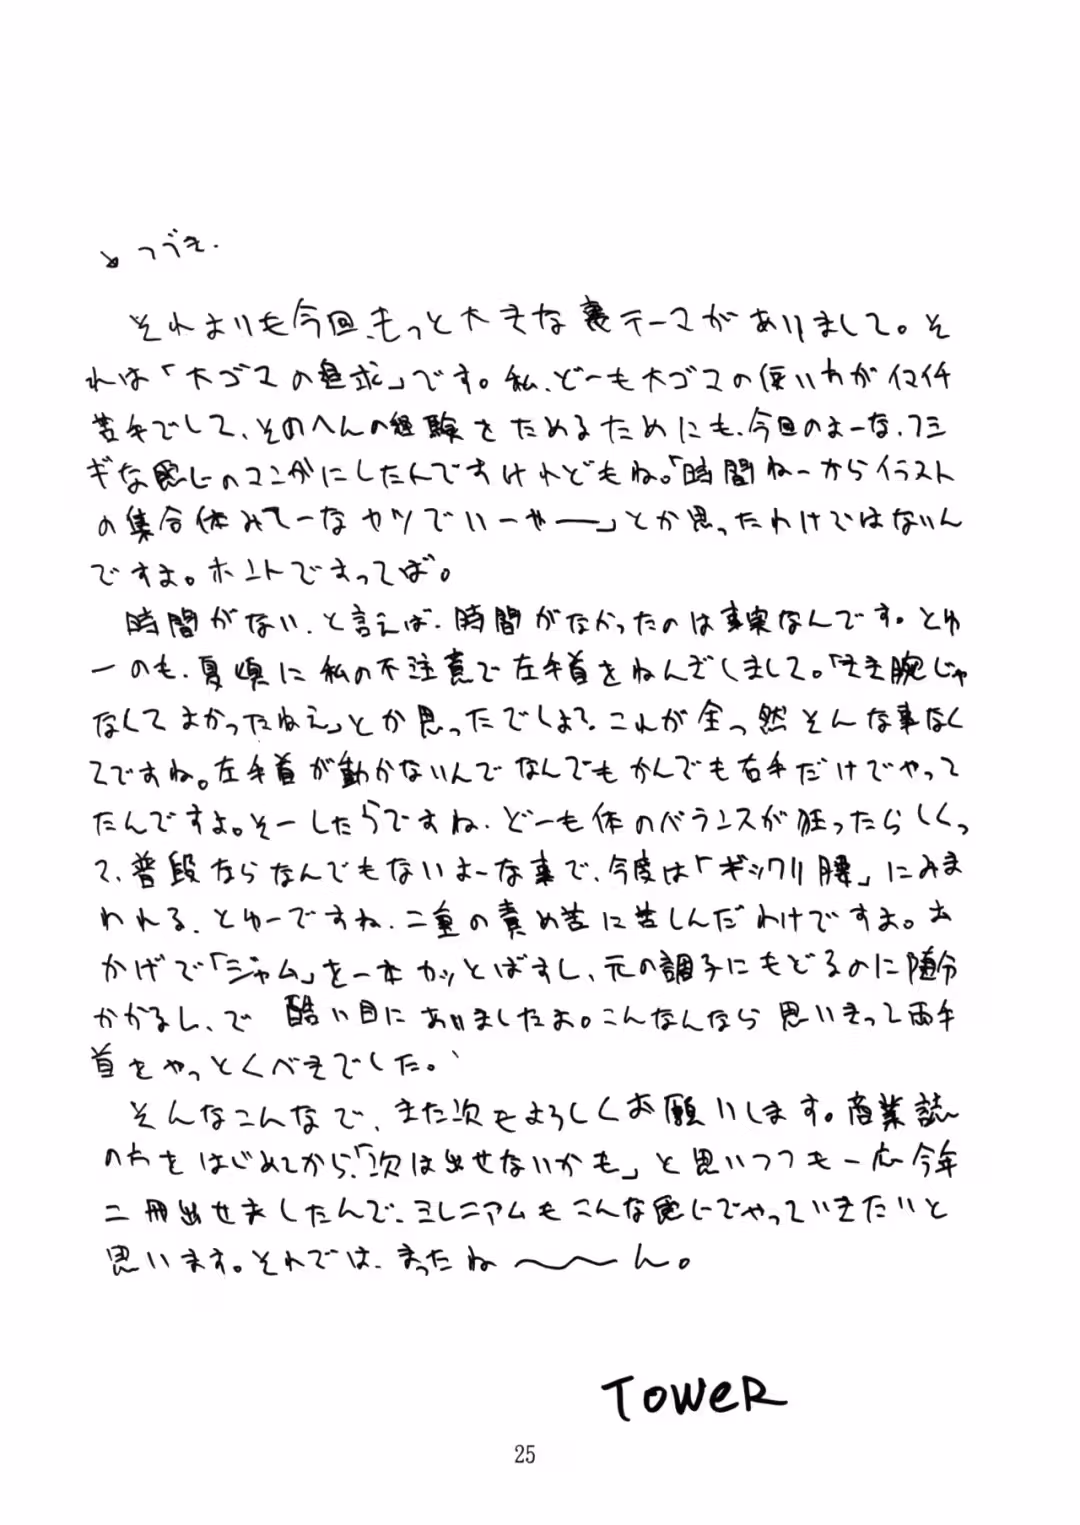 ↘つづき.
それよりも今回、もっと大きな裏テーマがありまして。そ
れは「大ゴマの追求」です。私、どーも大ゴマの使い方がイマイチ
苦手でして、そのへんの経験をためるためにも、今回のよーな、フシ
ギな感じのマンガにしたんですけれどもね。「時間ねーからイラスト
の集合体みてーなヤツでいーやー」とか思ったわけではないん
ですよ。ホントですってば。
時間がない、と言えば、時間がなかったのは事実なんです。とゆ
ーのも、夏頃に私の不注意で左手首をねんざしまして。「きき腕じゃ
なくてよかったねえ」とか思ったでしょ?これが全っ然そんな事なく
てですね。左手首が動かないんでなんでもかんでも右手だけでやって
たんですよ。そーしたらですね、どーも体のバランスが狂ったらしくっ
て、普段ならなんでもないよーな事で、今度は「ギックリ腰」にみま
われる、とゆーですね、二重の責め苦に苦しんだわけですよ。お
かげで「ジャム」を一本カッとばすし、元の調子にもどるのに随分
かかるし、で 酷い目にありましたよ。こんなんなら思いきって両手
首をやっとくべきでした。
そんなこんなで、また次もよろしくお願いします。商業誌
の方をはじめてから、「次は出せないかも」と思いつつも一応今年
二冊出せましたんで、ミレニアムもこんな感じでやっていきたいと
思います。それでは、まったね〜〜ん。
TOWER
25